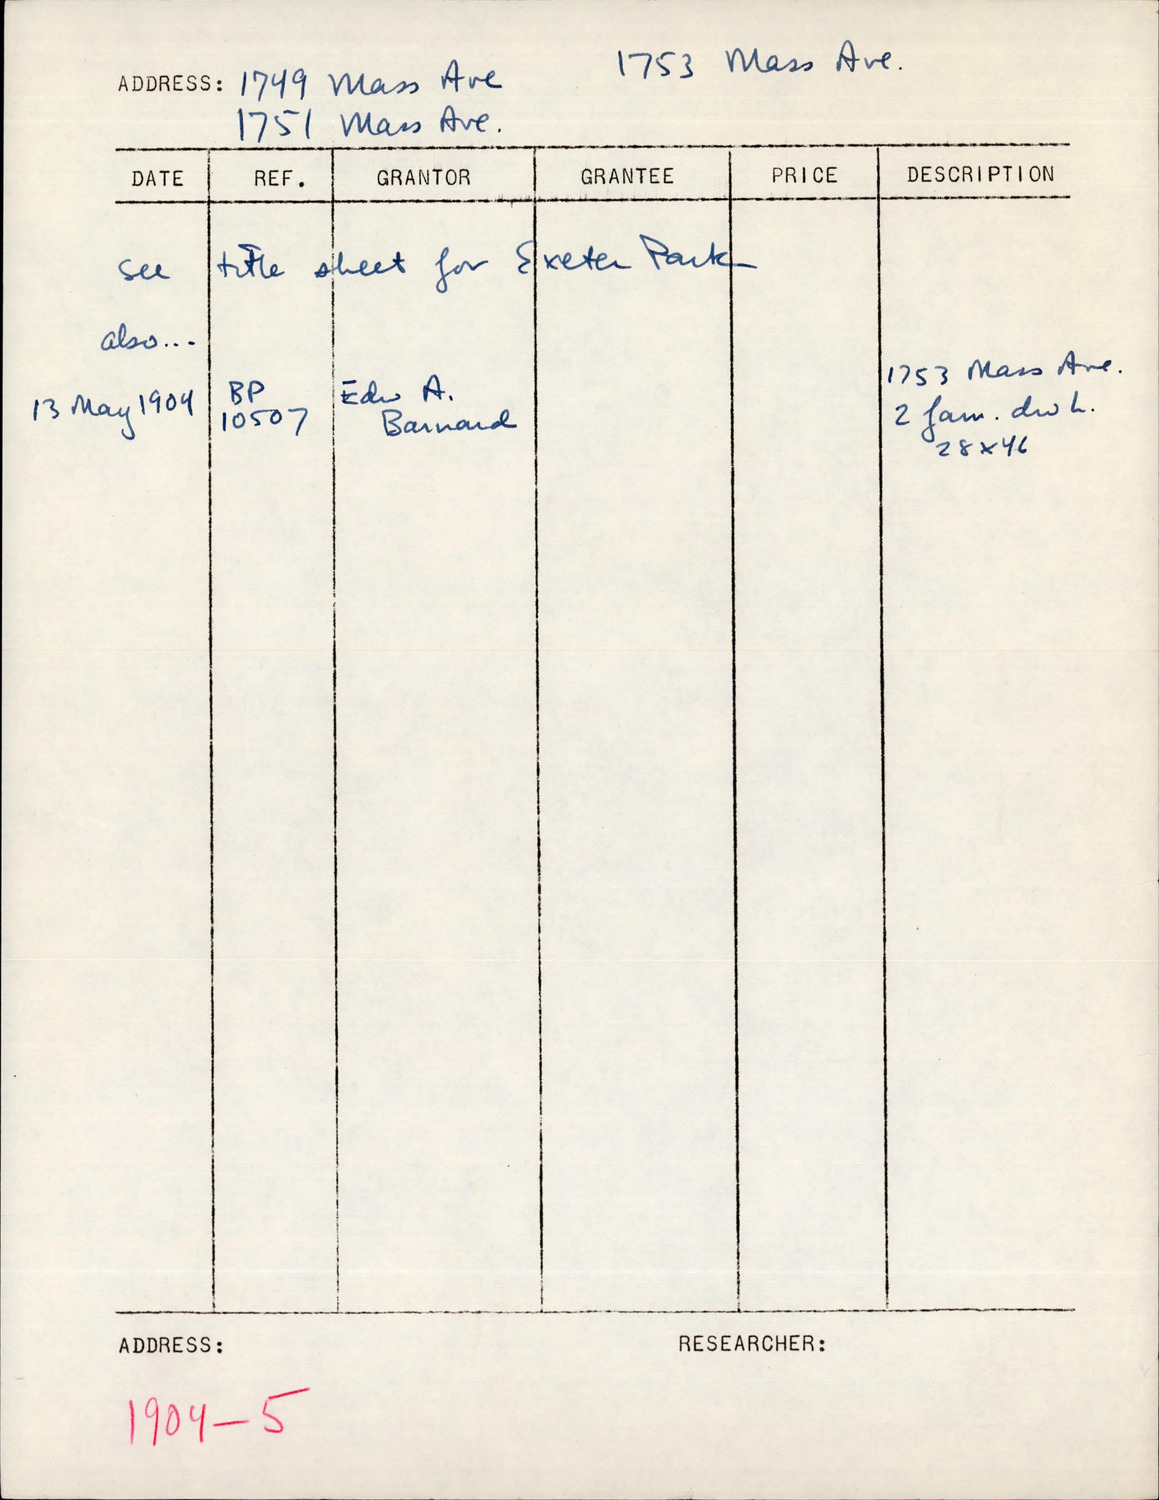 ADDRESS: 1749 Mass Ave 1753 Mass Ave.
1751 Mass Ave.
DATE REF. GRANTOR GRANTEE PRICE DESCRIPTION
see title sheet for Exeter Park
also...
13 May 1904 BP 10507 Edw A. Barnard 1753 Mass Ave.
2 fam. dwh.
28x46
ADDRESS: RESEARCHER:
1904-5